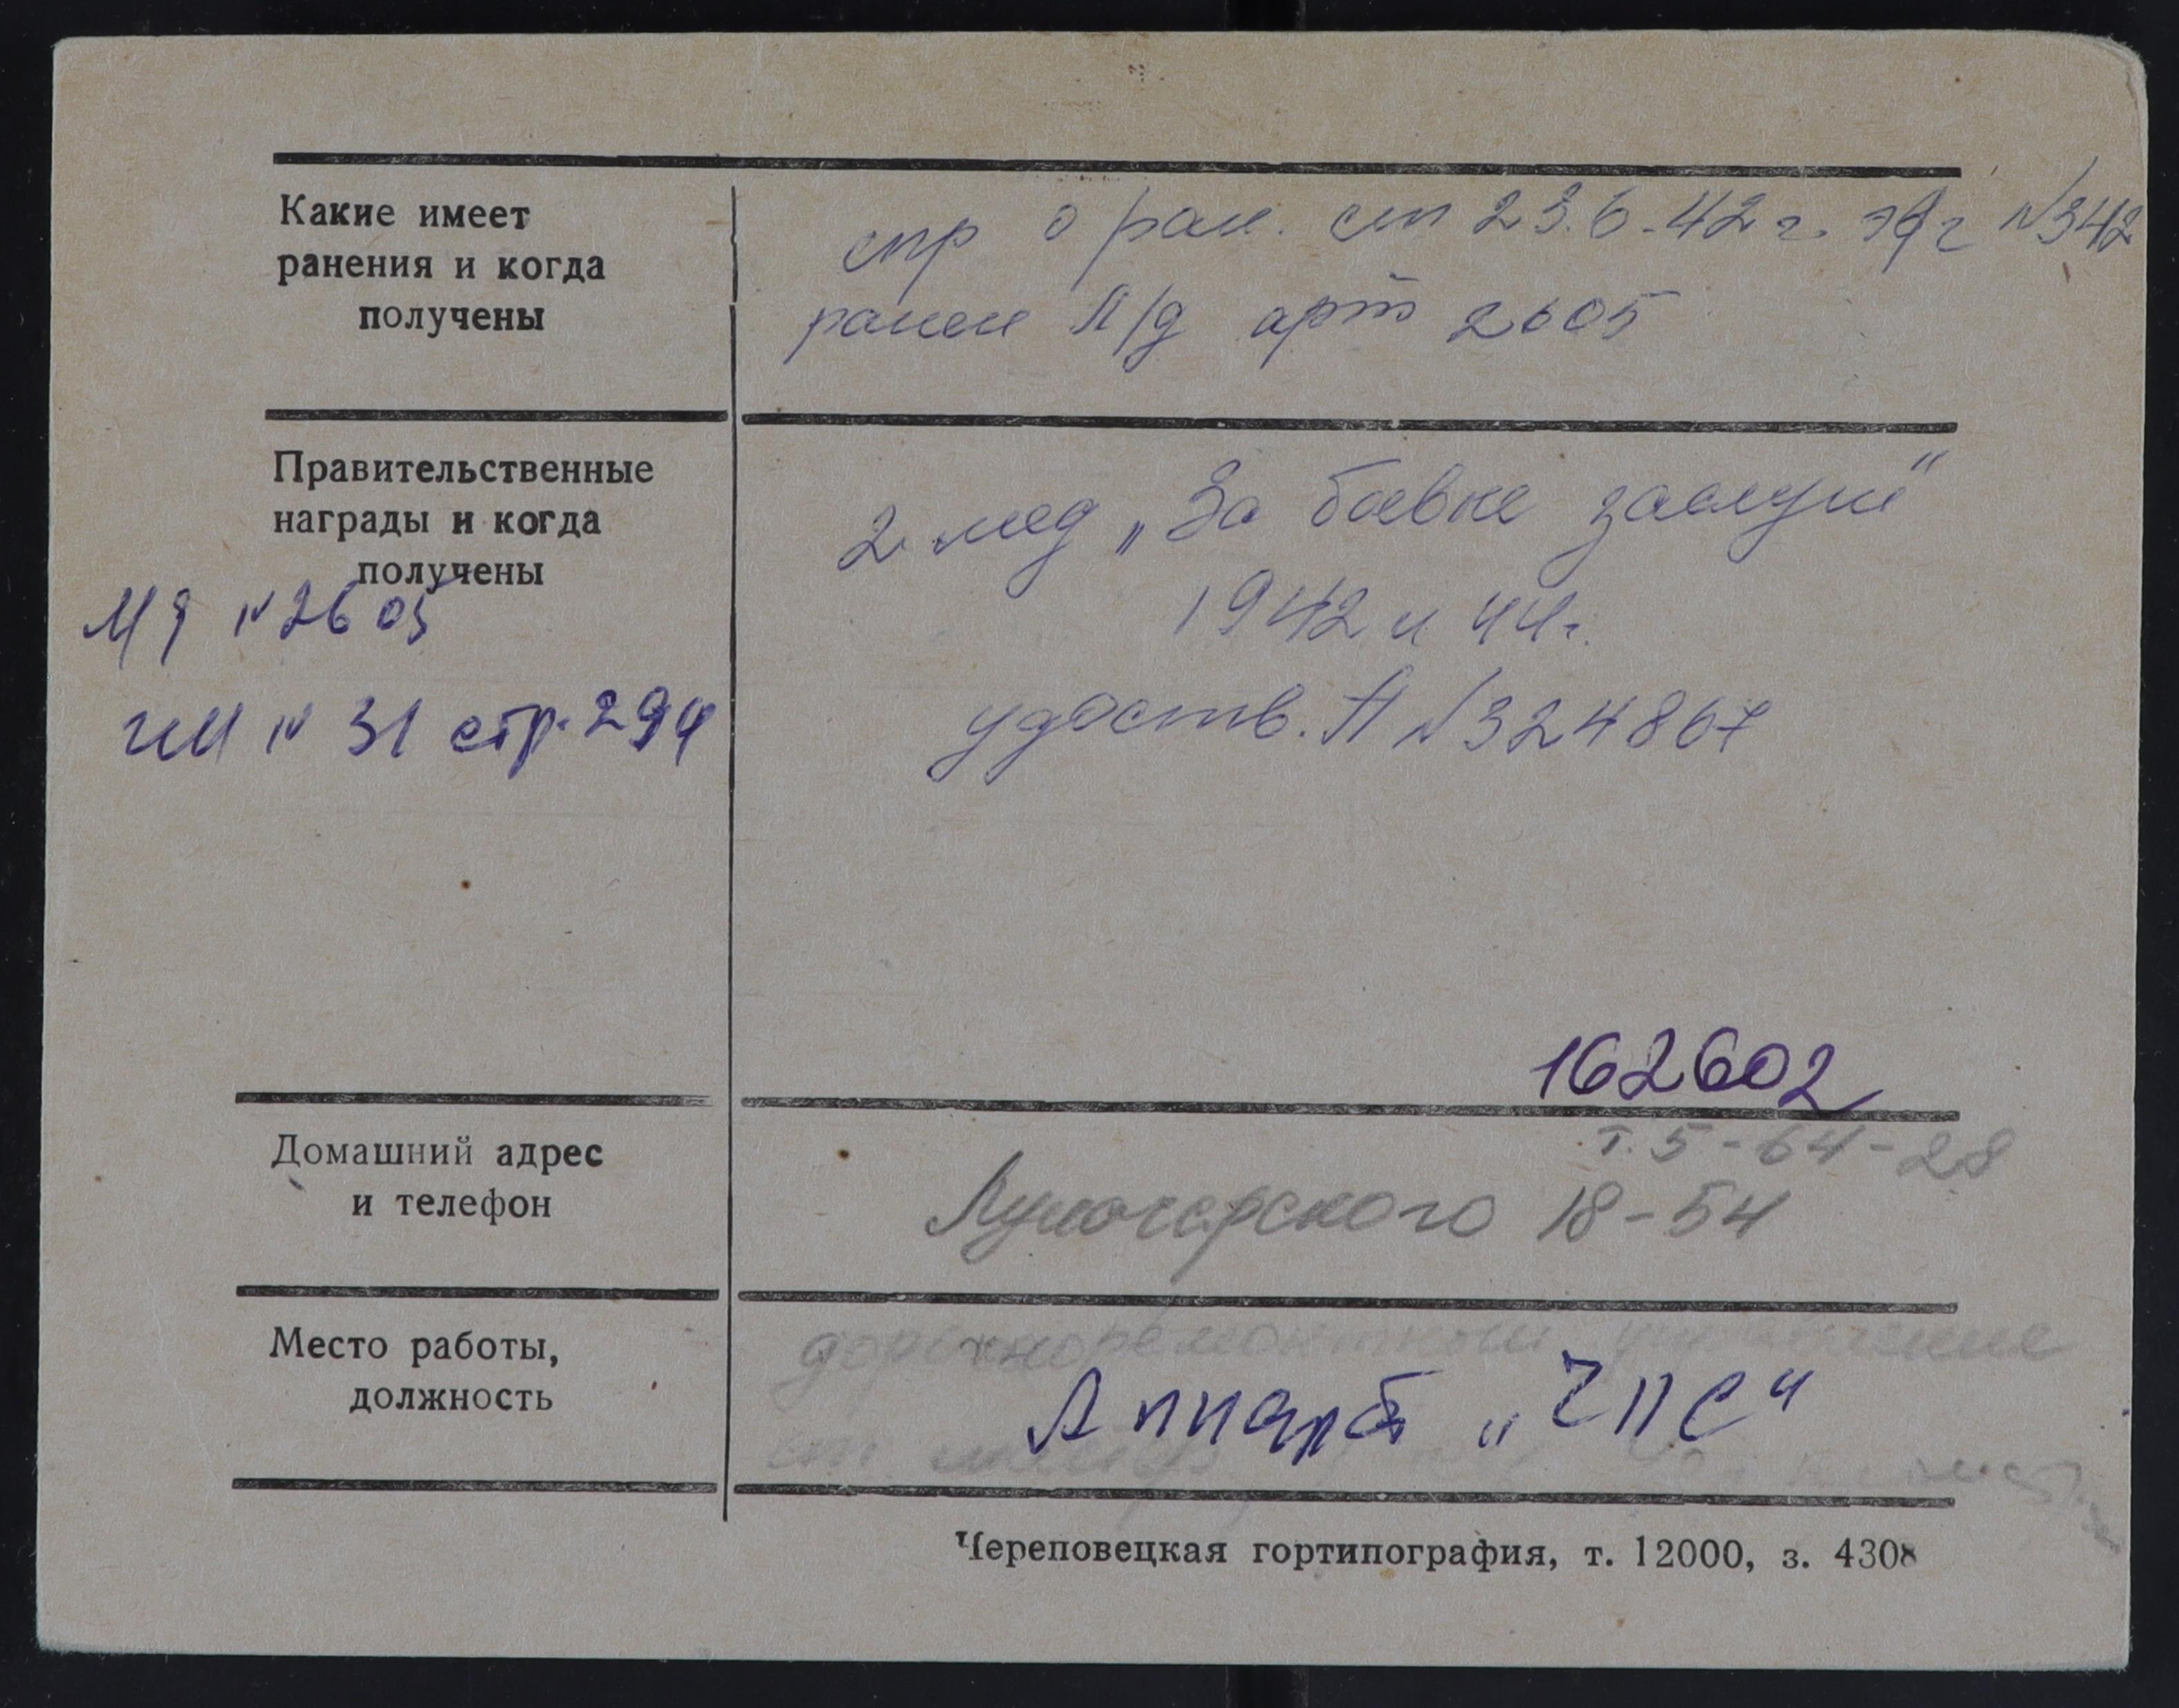 Какие имеет
ранения и когда
получены
спр о ран. от 23.6.42 г. эг №342
ранен Л/д арт 2605
Правительственные
награды и когда
получены
2 мед „За боевые заслуги"
1942 и 44г.
удоств. А №324867
МД №2605
им № 31 стр. 294
162602
Домашний адрес
и телефон
т. 5-64-28
Луначарского 18-54
Место работы,
должность
дорожноремонтном управление
Аппарат „ЧПС"
Череповецкая гортипография, т. 12000, з. 4308